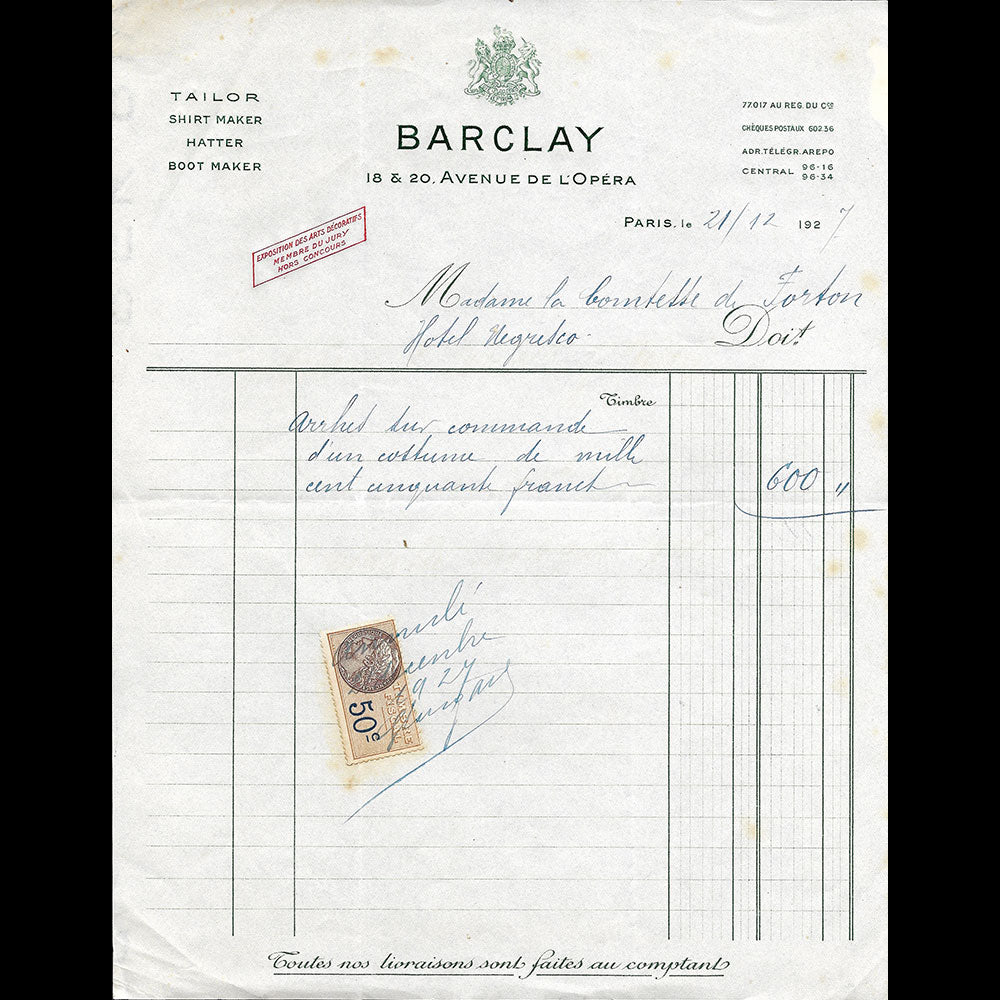 TAILOR
SHIRT MAKER
HATTER
BOOT MAKER
BARCLAY
18 & 20, AVENUE DE L'OPÉRA
77.017 AU REG. DU Cce
CHÈQUES POSTAUX 602.36
ADR. TÉLÉGR. AREPO
CENTRAL 96-16
96-34
PARIS, le 21/12 1927
EXPOSITION DES ARTS DÉCORATIFS
MEMBRE DU JURY
HORS CONCOURS
Madame la Comtesse de Forton
Hotel Negresco
Doit
Timbre
Arrhes sur commande
d'un costume de mille
cent cinquante francs 600 "
1927
TIMBRE
FISCAL
50c
Toutes nos livraisons sont faites au comptant